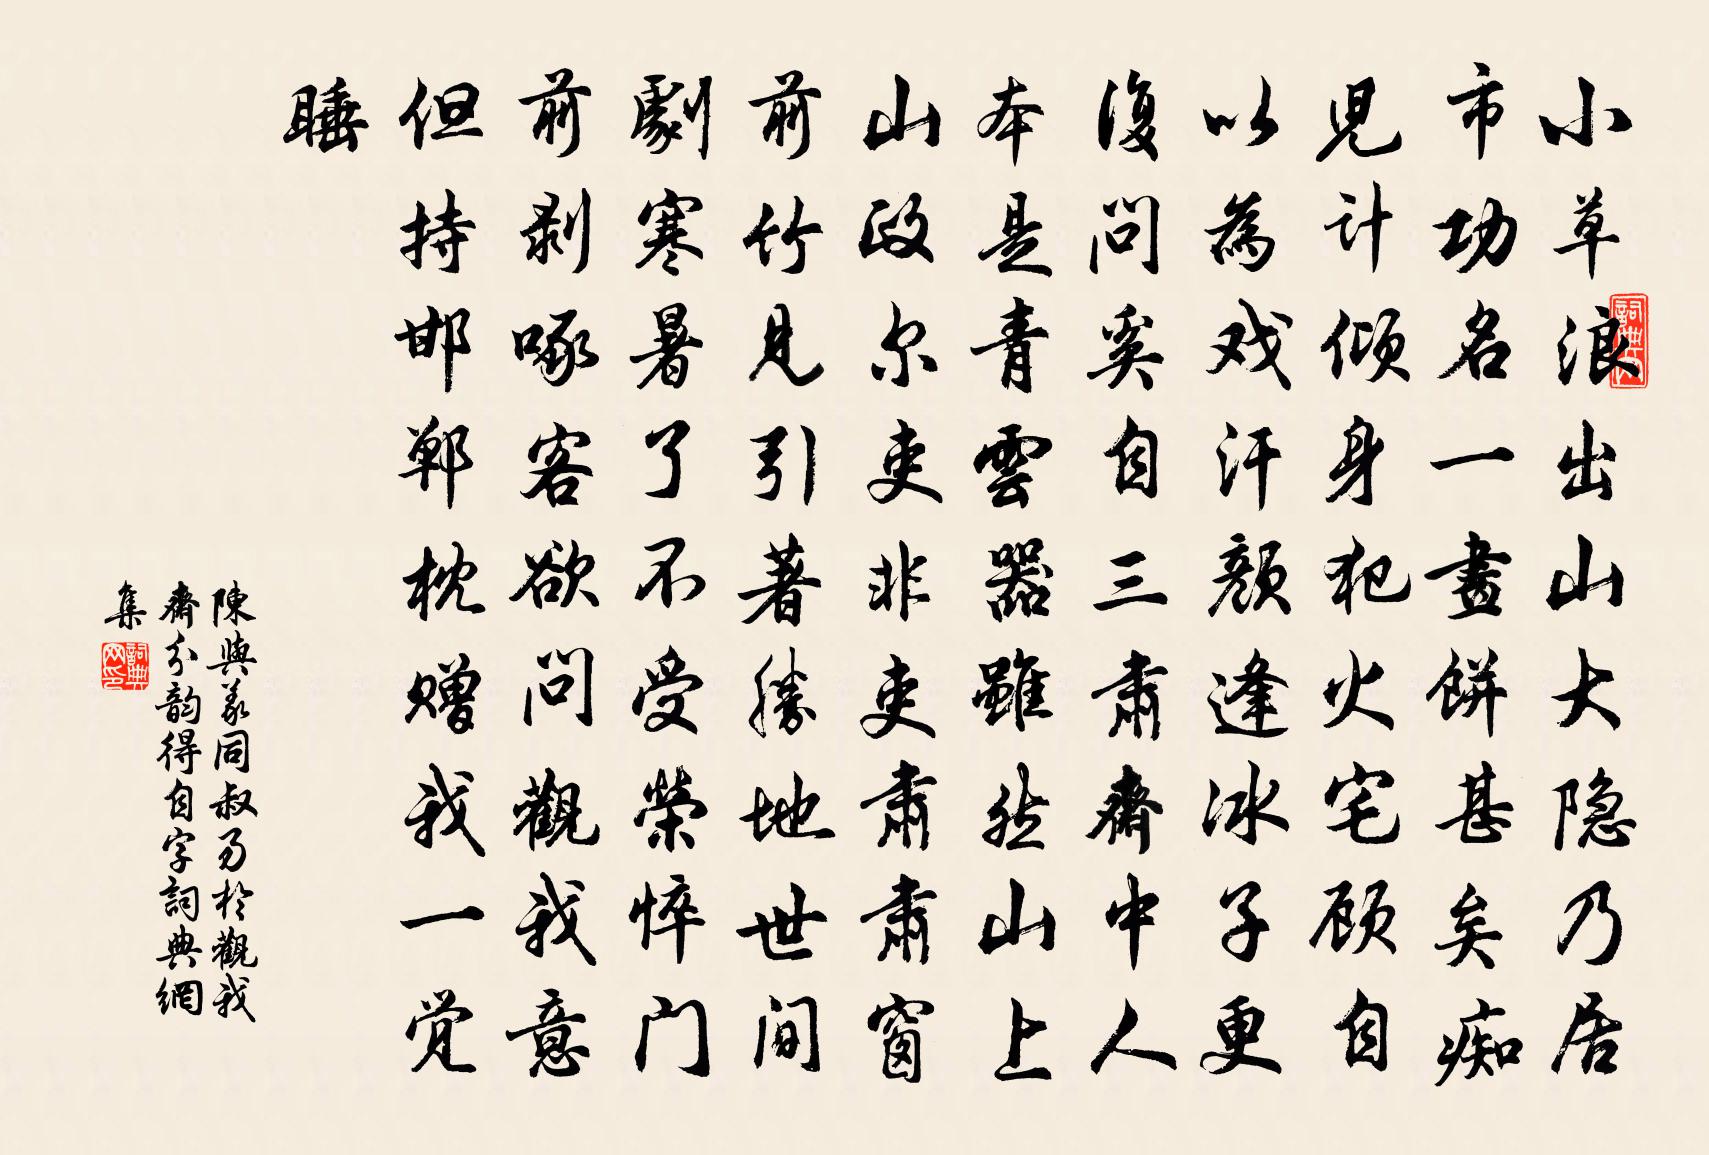 小草浪出山大隐乃居
市功名一畫餅甚矣痴
児计倾身犯火宅顾自
以為戏汗颜逢冰子更
復问奚自三肃齋中人
本是青雲器雖然山上
山政尔吏非吏肃肃窗
前竹见引著勝地世间
劇寒暑了不受榮悴门
前剥啄客欲问觀我意
但持邯郸枕赠我一觉
睡
陳與義同叔易於觀我
齋分韵得自字詞典網
集
詞典
詞典网印